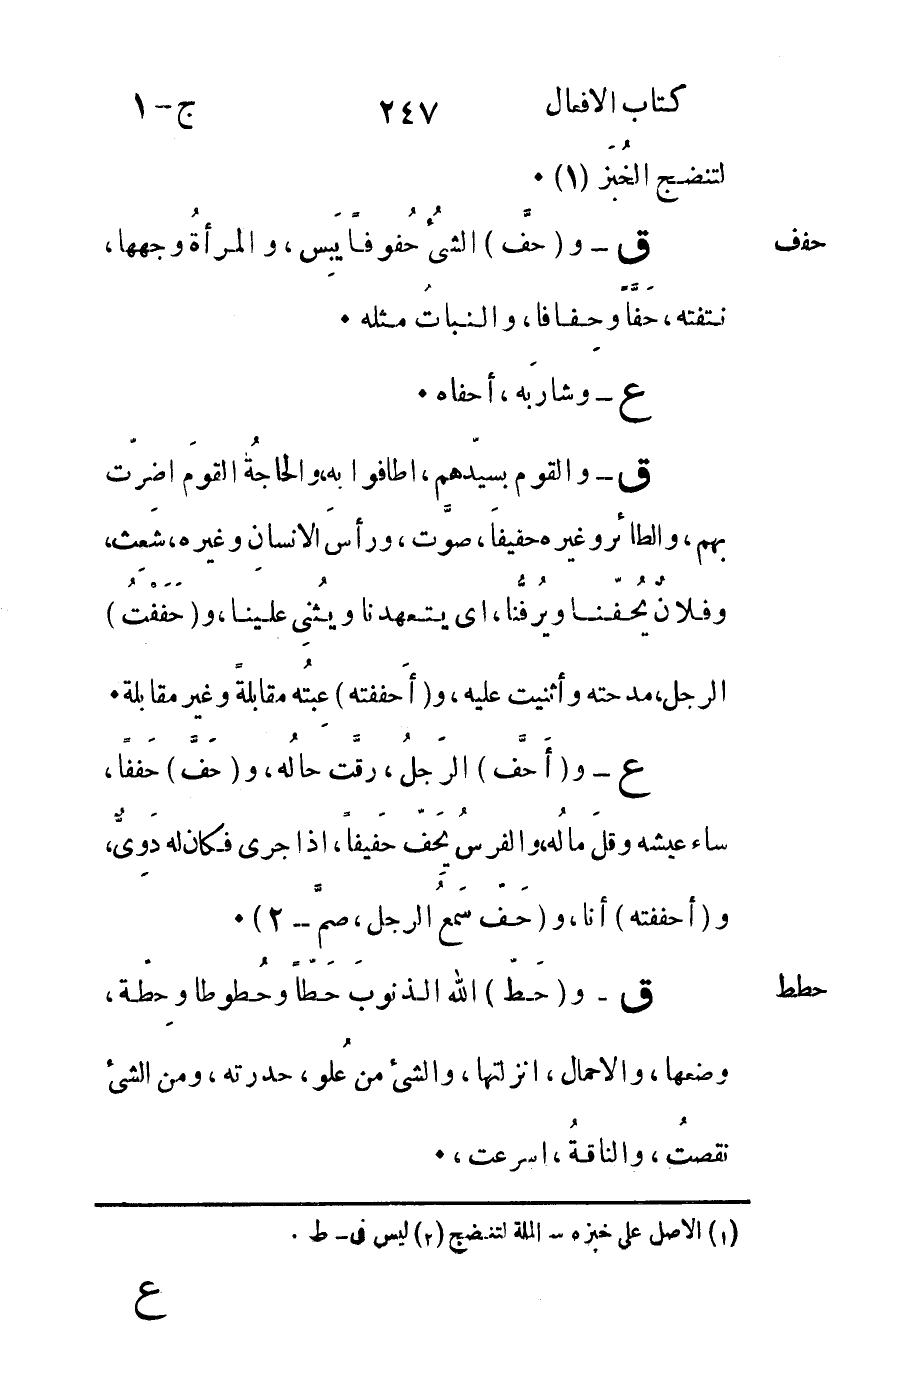 كتاب الافعال ٢٤٧ ج – ١
لتنضج الخُبَز (١) •
حفف ق – و ( حفَّ ) الشئُ حُفوفاً يَبِس، و المرأةُ وجهها،
نتفته، حَفّاً و حِفافا، و النباتُ مثله •
ع – و شاربَه، أحفاه •
ق – و القوم بسيّدهم، اطافوا به، و الحاجةُ القومَ اضرّت
بهم، و الطائر و غيره حفيفاً، صوَّت، و رأس الانسانِ و غيره، شعِث،
و فلانٌ يحُفّنا و يرُفُّنا، اى يتعهدنا و يُثنِى علينا، و ( حَفَفْتُ )
الرجل، مدحته و أثنيت عليه، و ( أحَففته ) عِبتُه مقابلةً و غير مقابلة •
ع – و ( أحَفَّ ) الرَجلُ، رقَّت حالُه، و ( حَفَّ ) حَففًا،
ساء عيشه و قلّ مالُه، و الفرسُ يَحِفّ حَفيفاً، اذا جرى فكان له دَوِىٌّ،
و ( أحففته ) أنا، و ( حَفّ سَمعُ الرجل، صمَّ – ٢ ) •
حطط ق - و ( حَطّ ) الله الذنوبَ حَطّاً و حُطوطا و حِطّة،
وضعها، و الاحمال، انزلتها، و الشئَ من عُلو، حدرته، و من الشئ
نقصتُ، و الناقةُ، اسرعت، •
(١) الاصل على خبزه – الملة لتنضج (٢) ليس فى – ط .
ع